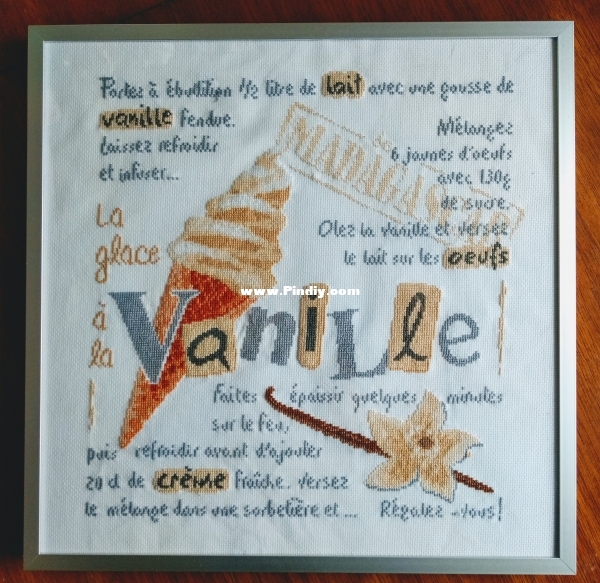 Portez à ébullition 1/2 litre de lait avec une gousse de
vanille fendue.
Laissez refroidir
et infuser...
Mélangez
6 jaunes d'oeufs
avec 130g
de sucre.
Otez la vanille et versez
le lait sur les oeufs
MADAGASCAR
La
glace
à
la
Vanille
www.Pindiy.com
Faites épaissir quelques minutes
sur le feu,
puis refroidir avant d'ajouter
20 cl de crème fraîche. Versez
le mélange dans une sorbetière et ... Régalez-vous!